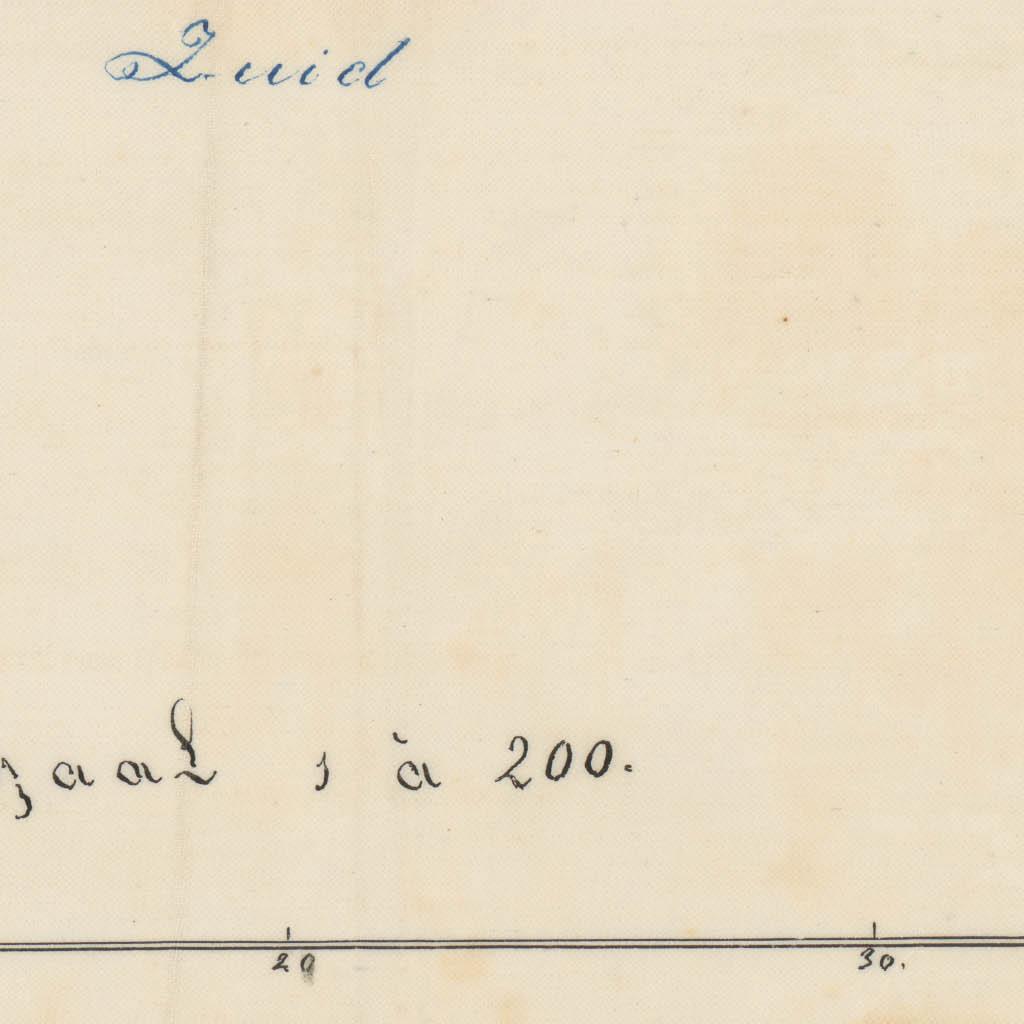 Zuid
zaal 1 à 200.
20 30.